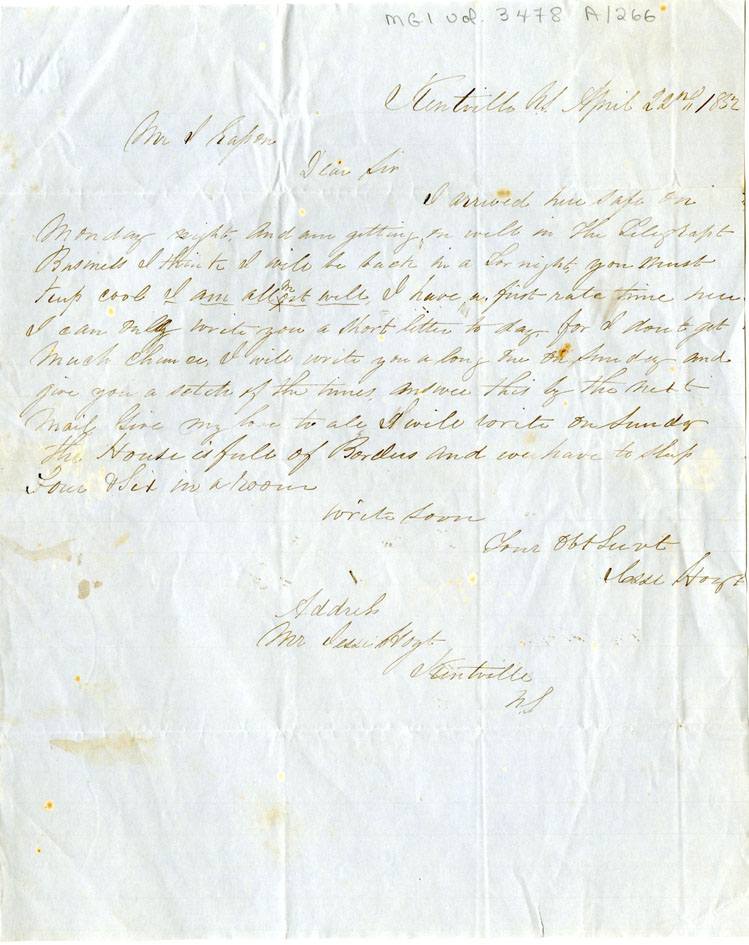 MG1 Vol. 3478 A/266
Kentville NS April 22nd, 1852
Mr I Eapon
Dear Sir
I arrived here safe on
Monday night, and am getting on well in the Telegrapt
Business I think I will be back in a for night, you must
keep cool I am all most well, I have a first rate time here
I can only write you a short letter to day, for I dont get
much chance, I will write you a long one on Sunday and
give you a setch of the times, answer this by the next
Mail Give my love to all, I will write on Sunday
the House is full of Borders and we have to sleep
Four & Six in a Room
write soon
Your Obt Servt
Jesse Hoyt
Address
Mr Jesse Hoyt
Kentville
NS